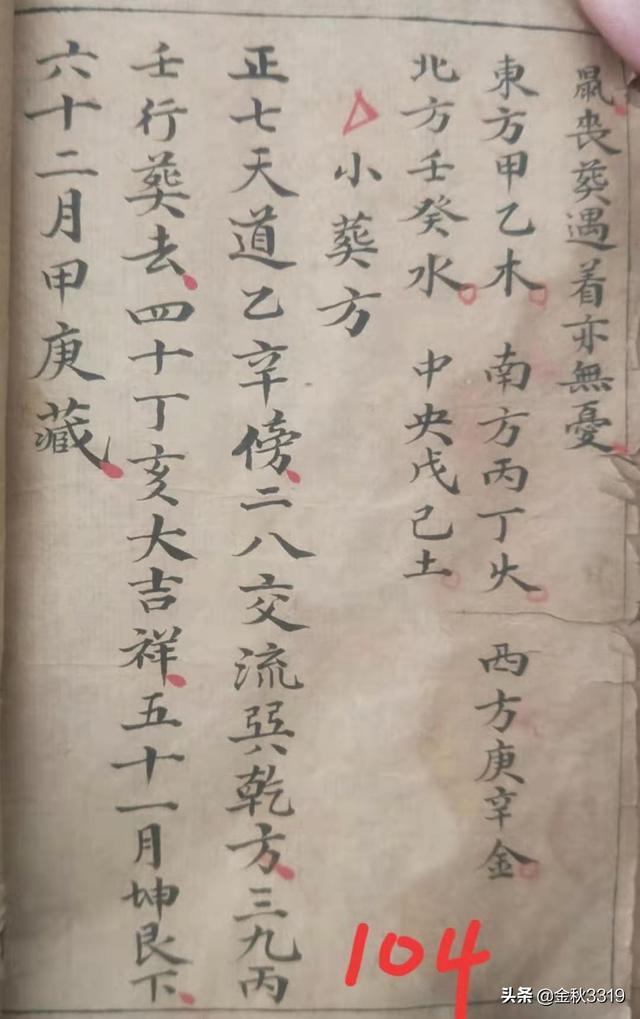 鼠丧葬遇着亦無憂
東方甲乙木 南方丙丁火 西方庚辛金
北方壬癸水 中央戊己土
小葬方
正七天道乙辛傍二八交流巽乾方三九丙
壬行葬去四十丁亥大吉祥五十一月坤艮下
六十二月甲庚藏
104
头条 @金秋3319